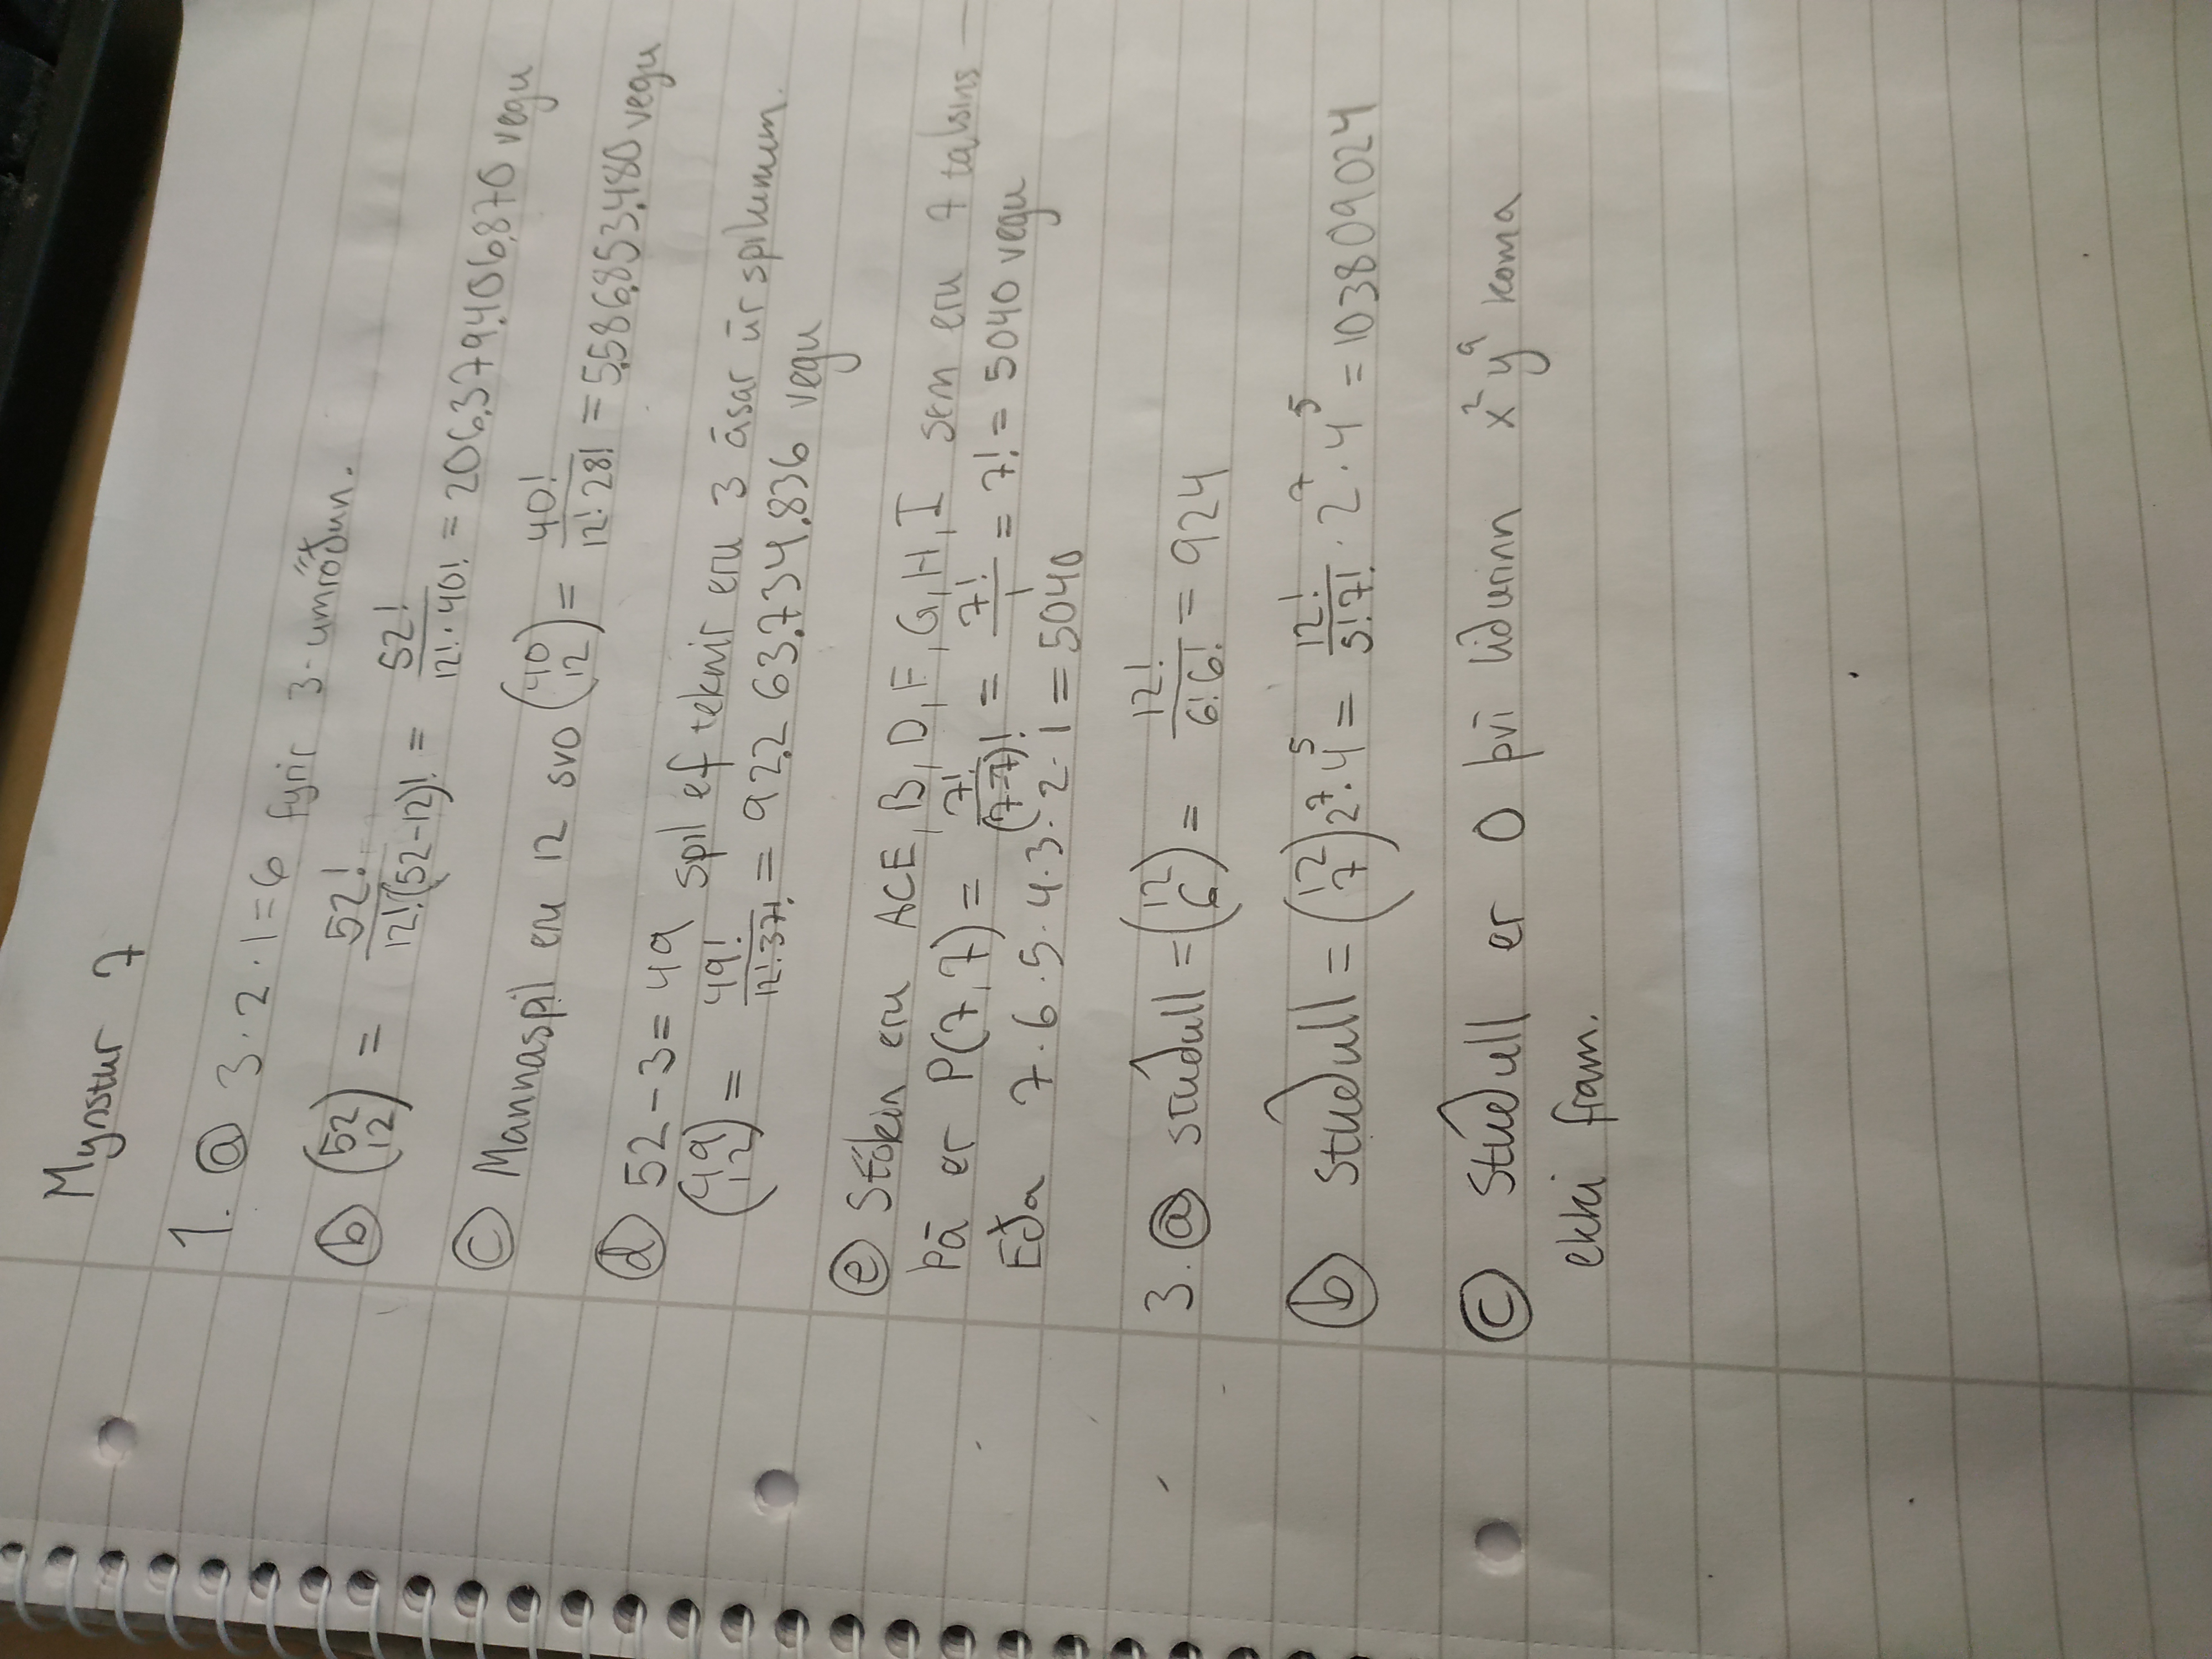 Mynstur 7
1. ⓐ 3·2·1=6 fyrir 3-umröðun.
ⓑ (52 12) = 52!/12!(52-12)! = 52!/12!·40! = 206.379.406.870 vegu
ⓒ Mannaspil eru 12 svo (40 12) = 40!/12!28! = 5.586.853.480 vegu
ⓓ 52-3=49 spil ef teknir eru 3 ásar úr spilunum.
(49 12) = 49!/12!37! = 92.263.734.836 vegu
ⓔ Stökin eru ACE, B, D, F, G, H, I sem eru 7 talsins —
Þá er P(7,7) = 7!/(7-7)! = 7!/1 = 7! = 5040 vegu
Eða 7·6·5·4·3·2·1 = 5040
3. ⓐ stuðull = (12 6) = 12!/6!6! = 924
ⓑ stuðull = (12 7)2⁷·4⁵ = 12!/5!7!·2⁷·4⁵ = 103809024
ⓒ Stuðull er 0 því liðurinn x²y⁹ koma
ekki fram.